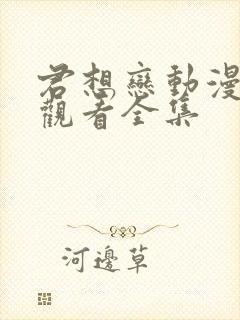 君想戀動漫
觀看全集
河邊草